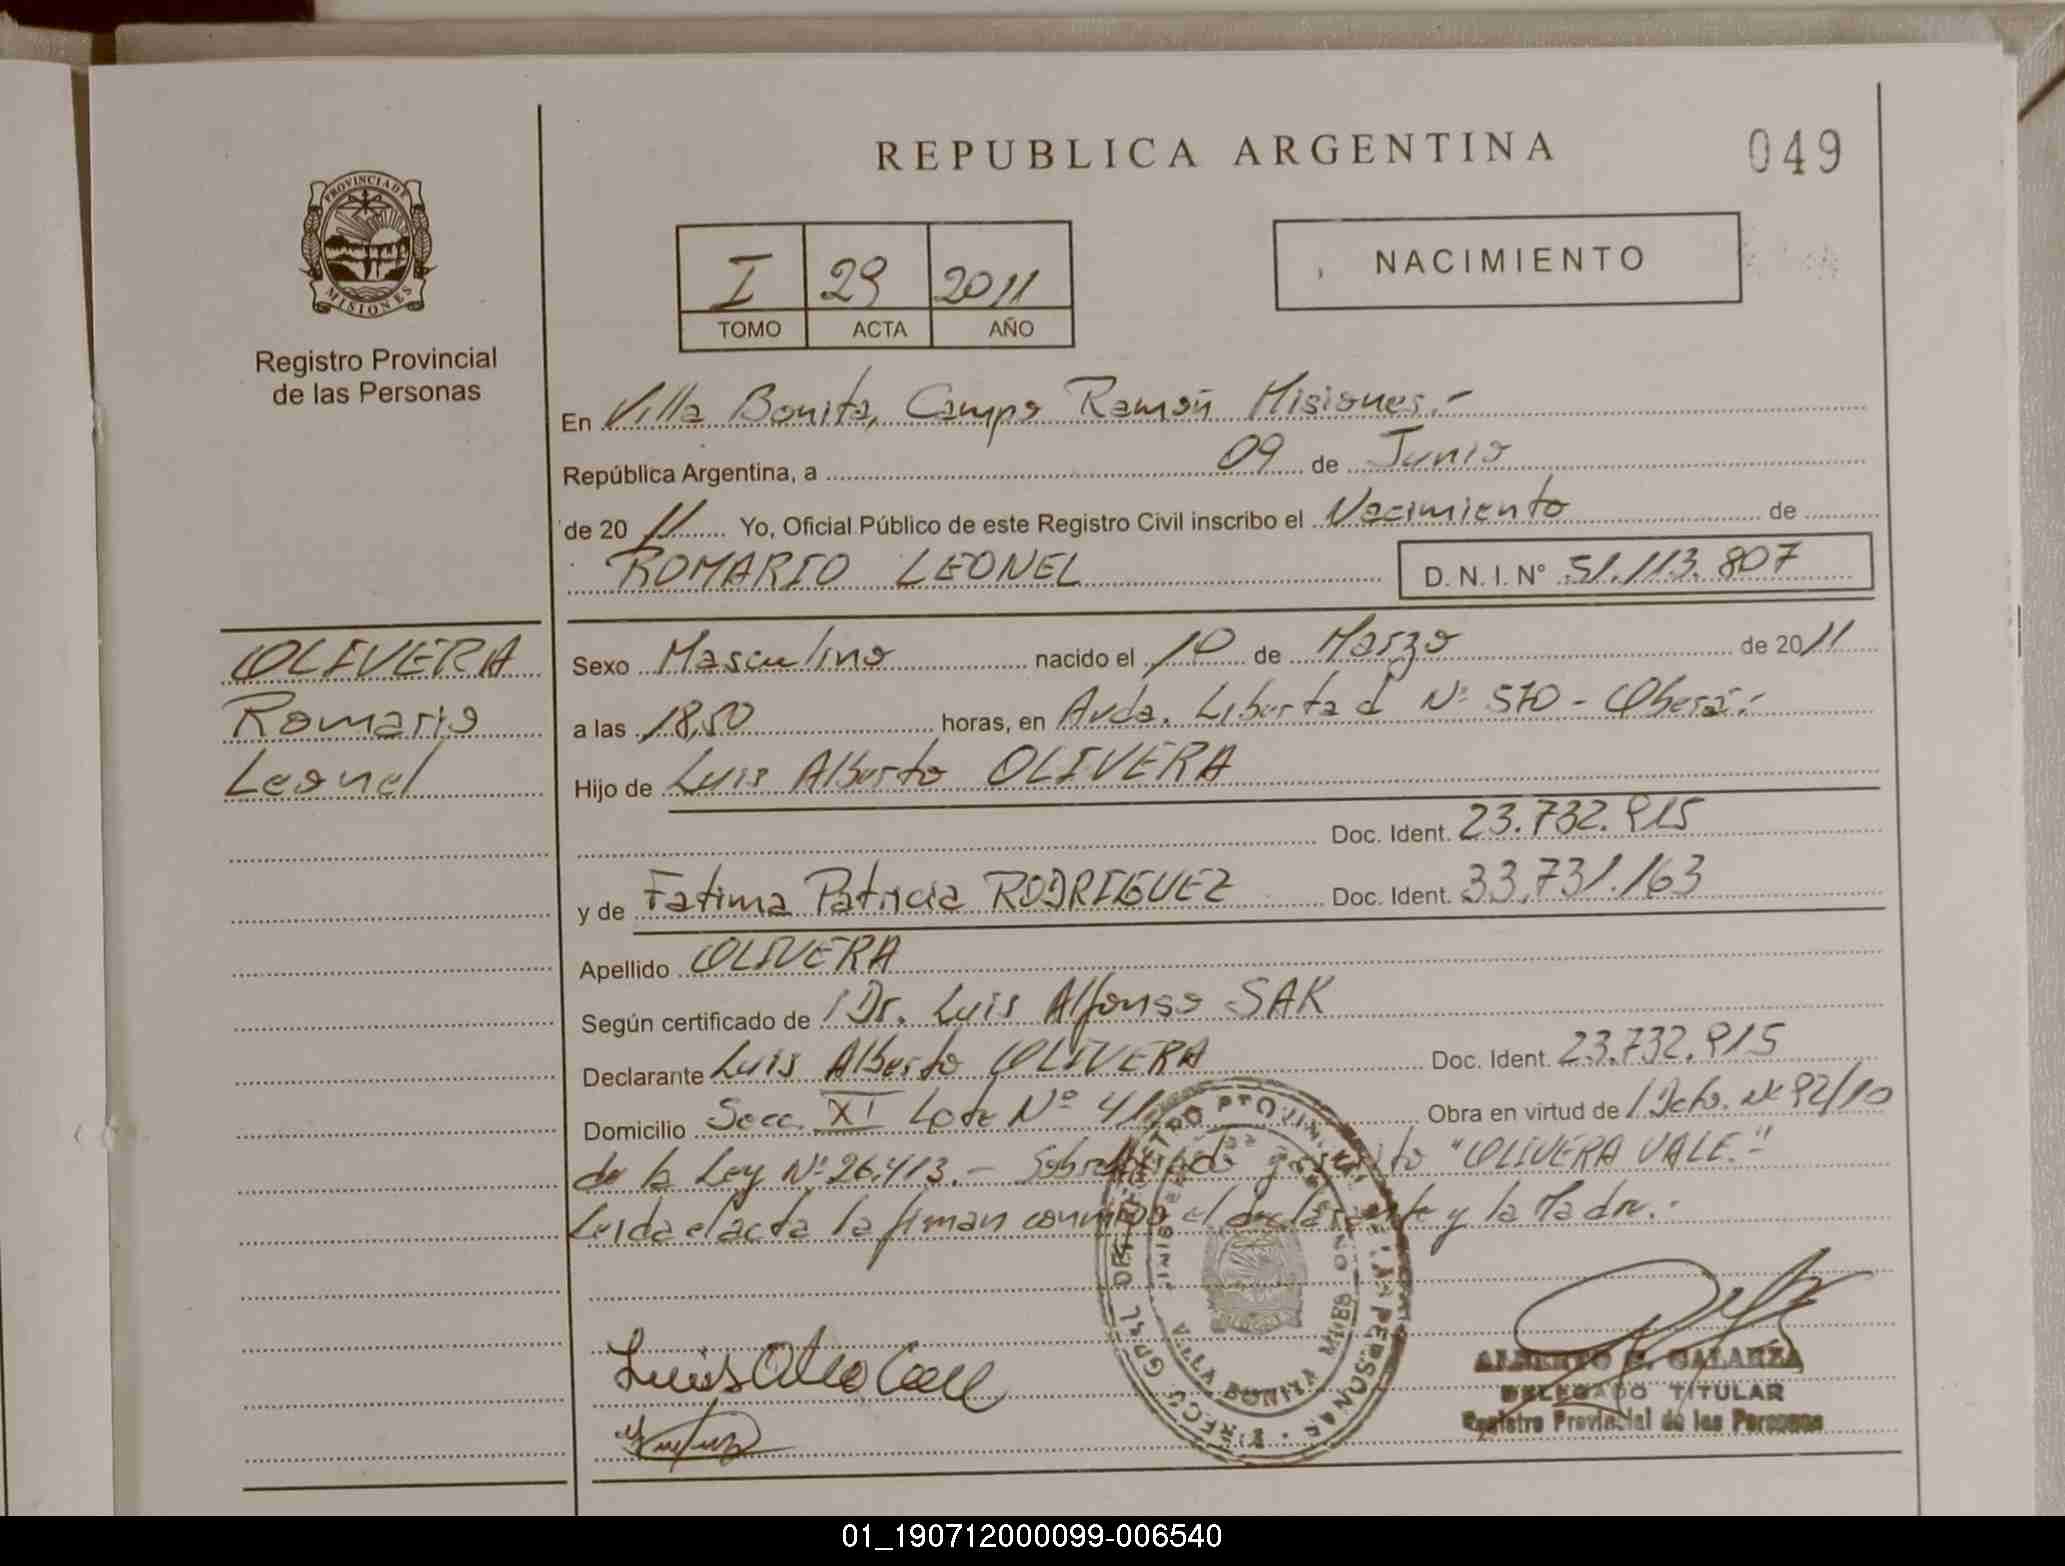 REPUBLICA ARGENTINA
049
PROVINCIA DE
MISIONES
Registro Provincial
de las Personas
I 29 2011
TOMO ACTA AÑO
NACIMIENTO
En Villa Bonita, Campo Ramón Misiones.-
República Argentina, a 09 de Junio
de 2011 Yo, Oficial Público de este Registro Civil inscribo el Nacimiento de
ROMARIO LEONEL D. N. I. N° 51.113.807
OLIVERA
Romario
Leonel
Sexo Masculino nacido el 10 de Marzo de 2011
a las 18,50 horas, en Avda. Libertad N° 570 - Oberá.-
Hijo de Luis Alberto OLIVERA
Doc. Ident. 23.732.915
y de Fatima Patricia RODRIGUEZ Doc. Ident. 33.731.163
Apellido OLIVERA
Según certificado de Dr. Luis Alfonso SAK
Declarante Luis Alberto OLIVERA Doc. Ident. 23.732.915
Domicilio Secc. XI Lote Nº 41 Obra en virtud de Dcto. Nº 92/10
de la Ley Nº 26.413.- Sobreborrado y escrito "OLIVERA VALE."-
Leida el acta la firman conmigo el declarante y la Madre.-
ALBERTO GALARZA
DELEGADO TITULAR
Registro Provincial de las Personas
01_190712000099-006540